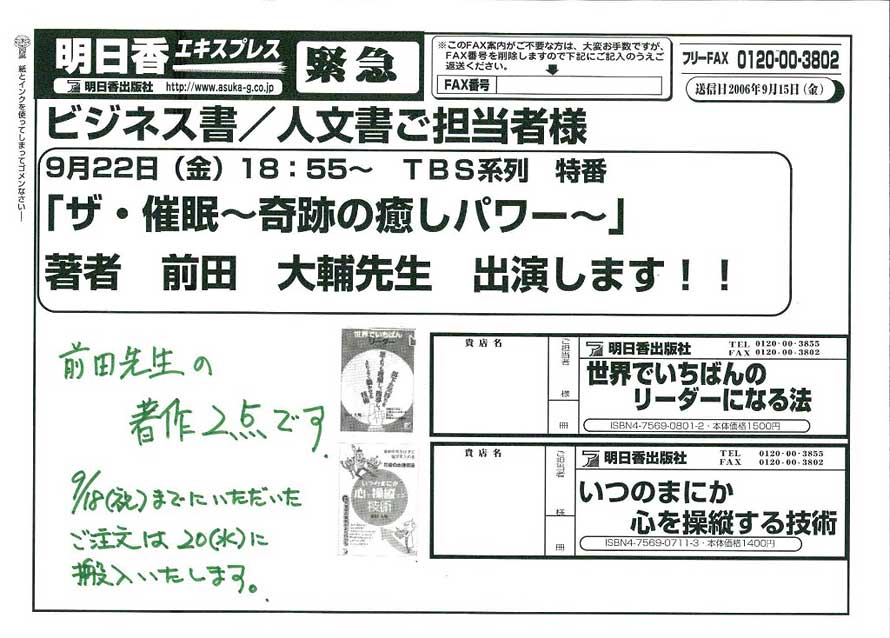 紙とインクを使ってしまってゴメンなさい!
明日香 エキスプレス
明日香出版社 http://www.asuka-g.co.jp
緊急
※このFAX案内がご不要な方は、大変お手数ですが、
FAX番号を削除しますので下記にご記入のうえご
返送ください。
FAX番号
フリーFAX 0120-00-3802
送信日2006年9月15日(金)
ビジネス書/人文書ご担当者様
9月22日(金)18:55~ TBS系列 特番
「ザ・催眠~奇跡の癒しパワー~」
著者 前田 大輔先生 出演します!!
前田先生の
著作2点です
9/18(祝)までにいただいた
ご注文は20(水)に
搬入いたします。
世界でいちばんの
リーダー
いつのまにか
心を操縦する
技術
貴店名
ご担当者
様
冊
明日香出版社
TEL 0120-00-3855
FAX 0120-00-3802
世界でいちばんの
リーダーになる法
ISBN4-7569-0801-2・本体価格1500円
貴店名
ご担当者
様
冊
明日香出版社
TEL 0120-00-3855
FAX 0120-00-3802
いつのまにか
心を操縦する技術
ISBN4-7569-0711-3・本体価格1400円